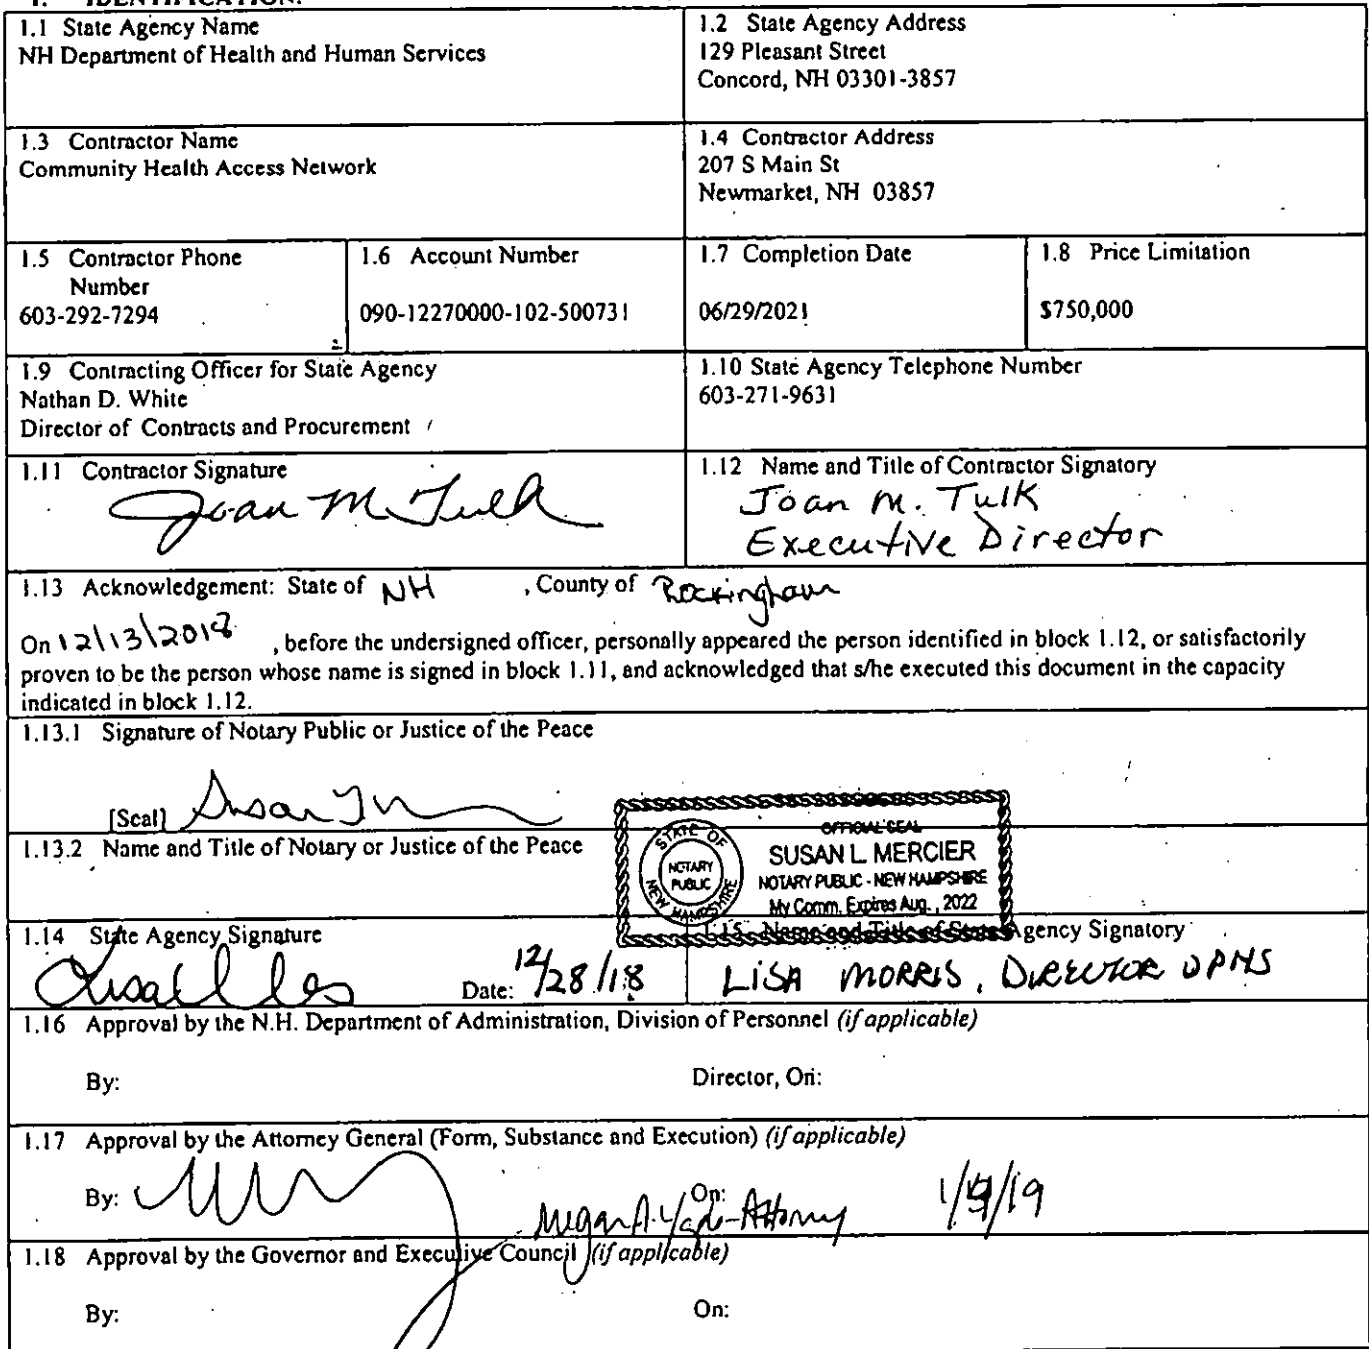 I. IDENTIFICATION.
1.1 State Agency Name
NH Department of Health and Human Services
1.2 State Agency Address
129 Pleasant Street
Concord, NH 03301-3857
1.3 Contractor Name
Community Health Access Network
1.4 Contractor Address
207 S Main St
Newmarket, NH 03857
1.5 Contractor Phone
Number
603-292-7294
1.6 Account Number
090-12270000-102-500731
1.7 Completion Date
06/29/2021
1.8 Price Limitation
$750,000
1.9 Contracting Officer for State Agency
Nathan D. White
Director of Contracts and Procurement
1.10 State Agency Telephone Number
603-271-9631
1.11 Contractor Signature
Joan M Tulk
1.12 Name and Title of Contractor Signatory
Joan M. Tulk
Executive Director
1.13 Acknowledgement: State of NH , County of Rockingham
On 12\13\2018 , before the undersigned officer, personally appeared the person identified in block 1.12, or satisfactorily
proven to be the person whose name is signed in block 1.11, and acknowledged that s/he executed this document in the capacity
indicated in block 1.12.
1.13.1 Signature of Notary Public or Justice of the Peace
[Seal] Susan
1.13.2 Name and Title of Notary or Justice of the Peace
STATE OF NEW HAMPSHIRE
NOTARY
PUBLIC
OFFICIAL SEAL
SUSAN L. MERCIER
NOTARY PUBLIC - NEW HAMPSHIRE
My Comm. Expires Aug. , 2022
1.14 State Agency Signature
Date: 12/28/18
1.15 Name and Title of State Agency Signatory
LISA MORRIS, DIRECTOR DPHS
1.16 Approval by the N.H. Department of Administration, Division of Personnel (if applicable)
By:
Director, On:
1.17 Approval by the Attorney General (Form, Substance and Execution) (if applicable)
By:
On:
Megan A. - Attorney
1.18 Approval by the Governor and Executive Council (if applicable)
By:
On: